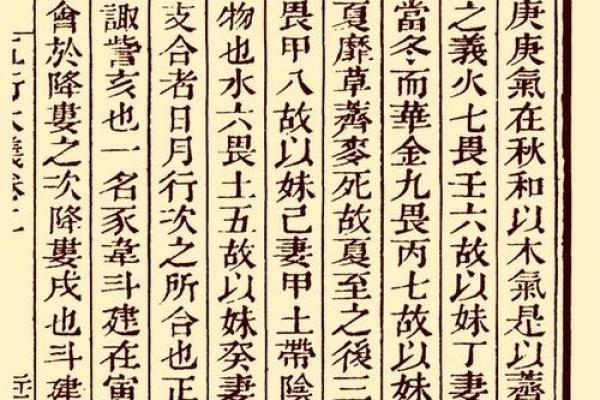 庚庚氣在秋和以木氣是以薺
之義火七畏壬六故以妹丁妻
當冬而華金九畏丙七故以妹
夏靡草薺麥死故夏至之後三
畏甲八故以妹己妻甲土帶陰
物也水六畏土五故以妹癸妻
支合者日月行次之所合也正
諏訾亥也一名豕韋斗建在寅
會於降婁之次降婁戌也斗建
五行大義卷二